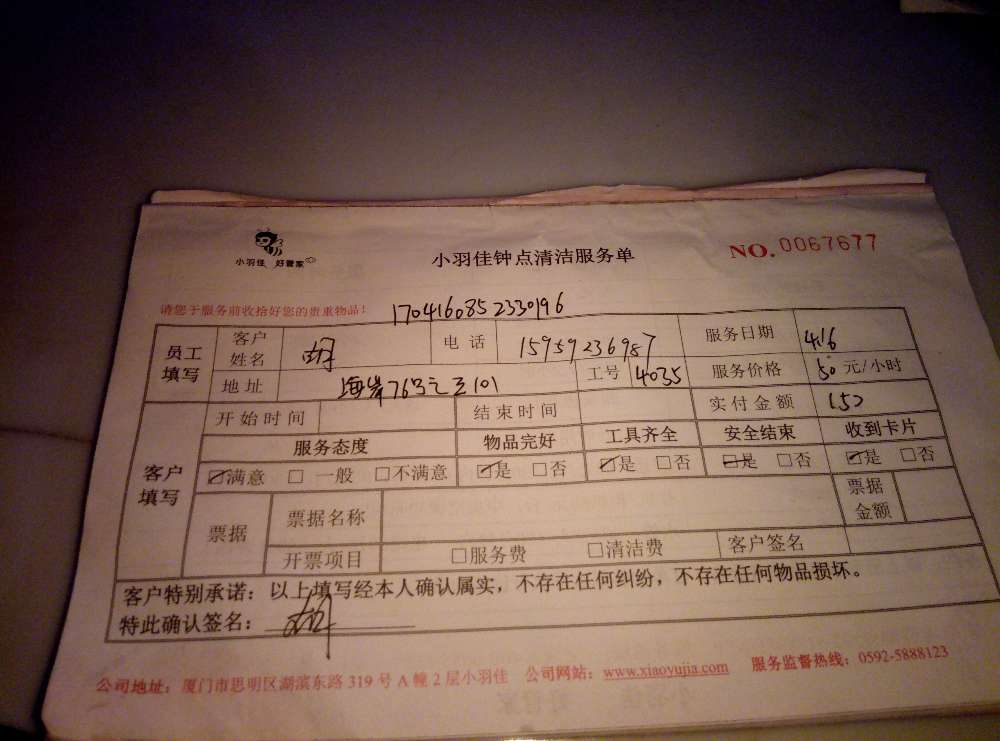 小羽佳 好管家
小羽佳钟点清洁服务单
NO.0067677
请您于服务前收拾好您的贵重物品!
1704160852330196
员工填写 客户姓名 胡 电话 15959236987 服务日期 4.16
地址 海岸76号之三101 工号 14035 服务价格 50 元/小时
客户填写 开始时间 结束时间 实付金额 152
服务态度 物品完好 工具齐全 安全结束 收到卡片
☑满意 □一般 □不满意 ☑是 □否 ☑是 □否 ☑是 □否 ☑是 □否
票据 票据名称 票据金额
开票项目 □服务费 □清洁费 客户签名
客户特别承诺:以上填写经本人确认属实,不存在任何纠纷,不存在任何物品损坏。
特此确认签名:
公司地址:厦门市思明区湖滨东路 319 号 A 幢 2 层小羽佳 公司网站:www.xiaoyujia.com 服务监督热线:0592-5888123